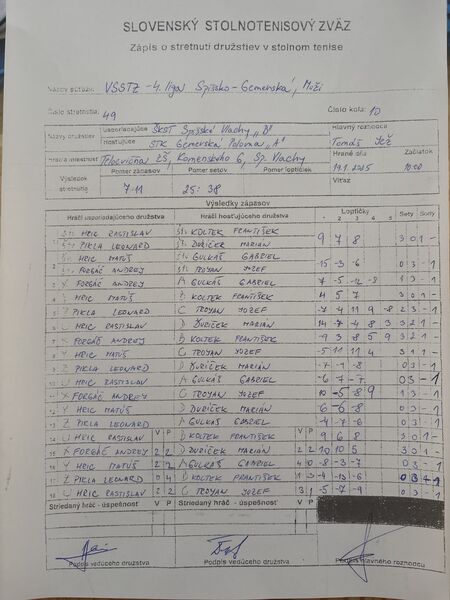 SLOVENSKÝ STOLNOTENISOVÝ ZVÄZ
Zápis o stretnutí družstiev v stolnom tenise
Názov súťaže: VSSTZ - 4. liga Spišsko - Gemerská, Muži
Číslo stretnutia: 49 Číslo kola: 10
Názvy družstiev Usporiadajúce ŠKST Spišské Vlachy „D" Hlavný rozhodca
Hosťujúce STK Gemerská Poloma „A" Tomáš
Hracia miestnosť Telocvičňa ZŠ, Komenského 6, Sp. Vlachy Hrané dňa 19.1.2025 Začiatok 10:00
Výsledok stretnutia Pomer zápasov Pomer setov Pomer loptičiek Víťaz
7:11 25:38
Výsledky zápasov
Hráči usporiadajúceho družstva Hráči hosťujúceho družstva Loptičky Sety Body
1 2 3 4 5
HRIC RASTISLAV KOLTEK FRANTIŠEK
PIKLA LEONARD ĎURIČEK MARIÁN 9 7 8 3 0 1 -
HRIC MATÚŠ GULKÁŠ GABRIEL
FORGÁČ ANDREY TROYAN YOZEF -15 -3 -6 0 3 - 1
FORGÁČ ANDREY A GULKÁŠ GABRIEL
HRIC MATÚŠ B KOLTEK FRANTIŠEK 4 5 7 3 0 1 -
PIKLA LEONARD C TROYAN YOZEF -7 4 11 -9 -8 2 3 - 1
HRIC RASTISLAV D ĎURIČEK MARIÁN 14 -7 -4 8 3 3 2 1 -
FORGÁČ ANDREY B KOLTEK FRANTIŠEK -9 3 8 5 9
HRIC MATÚŠ C TROYAN YOZEF -5 11 11 4 3 1 1 -
PIKLA LEONARD D ĎURIČEK MARIÁN -7 -1 -8 0 3 - 1
HRIC RASTISLAV A GULKÁŠ GABRIEL -6 -7 -7 0 3 - 1
FORGÁČ ANDREY C TROYAN YOZEF
HRIC MATÚŠ D ĎURIČEK MARIÁN -6 -6 -8 0 3 - 1
PIKLA LEONARD A GULKÁŠ GABRIEL -4 -7 -6 0 3 - 1
HRIC RASTISLAV V P B KOLTEK FRANTIŠEK V P 9 6 8 3 0 1 -
FORGÁČ ANDREY 2 2 D ĎURIČEK MARIÁN 2 2 10 10 5 3 0 1 -
HRIC MATÚŠ 2 2 A GULKÁŠ GABRIEL 4 0 -8 -3 -7 0 3 - 1
PIKLA LEONARD 0 4 B KOLTEK FRANTIŠEK 1 3 -4 -13 -6 0 3 - 1
HRIC RASTISLAV 2 2 C TROYAN YOZEF 3 1 -5 -7 -9 0 3 - 1
Striedaný hráč - úspešnosť V P Striedaný hráč - úspešnosť V P
Podpis vedúceho družstva Podpis vedúceho družstva Podpis hlavného rozhodcu